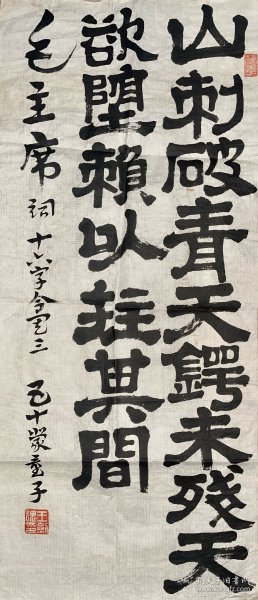 山刺破青天鍔未殘天
欲墮賴以拄其間
毛主席词十六字令三